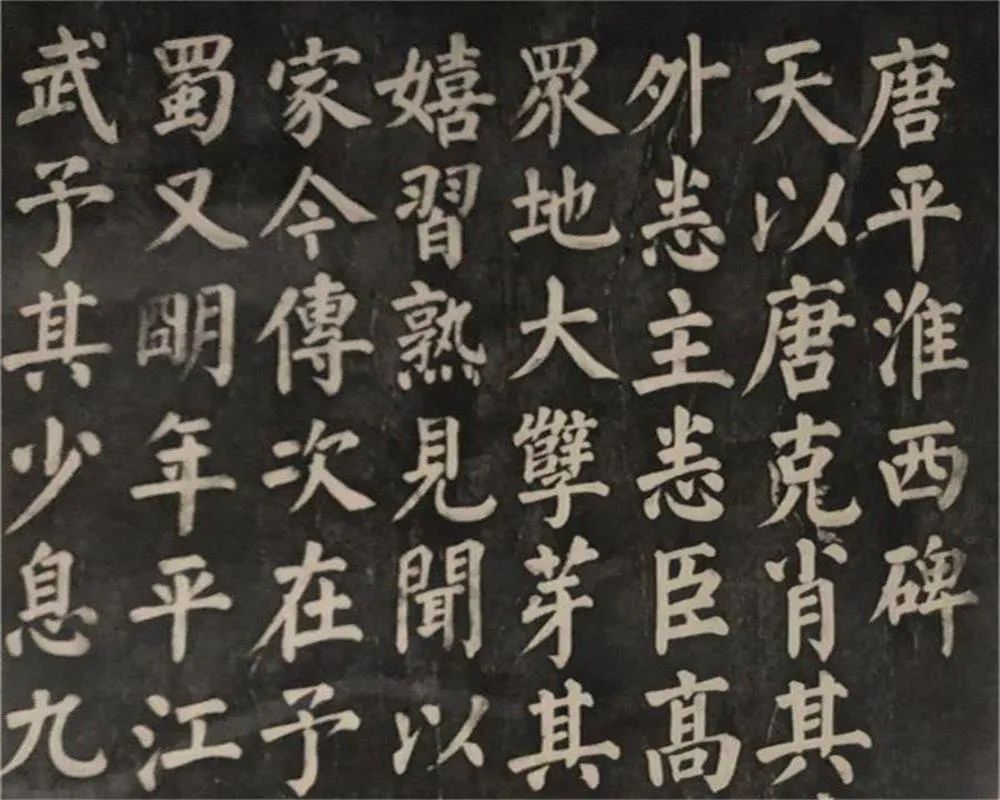 唐平淮西碑
天以唐克肖其
外悉主悉臣高
眾地大孽芽其
嬉習熟見聞以
家今傳次在予
蜀又明年平江
武予其少息九